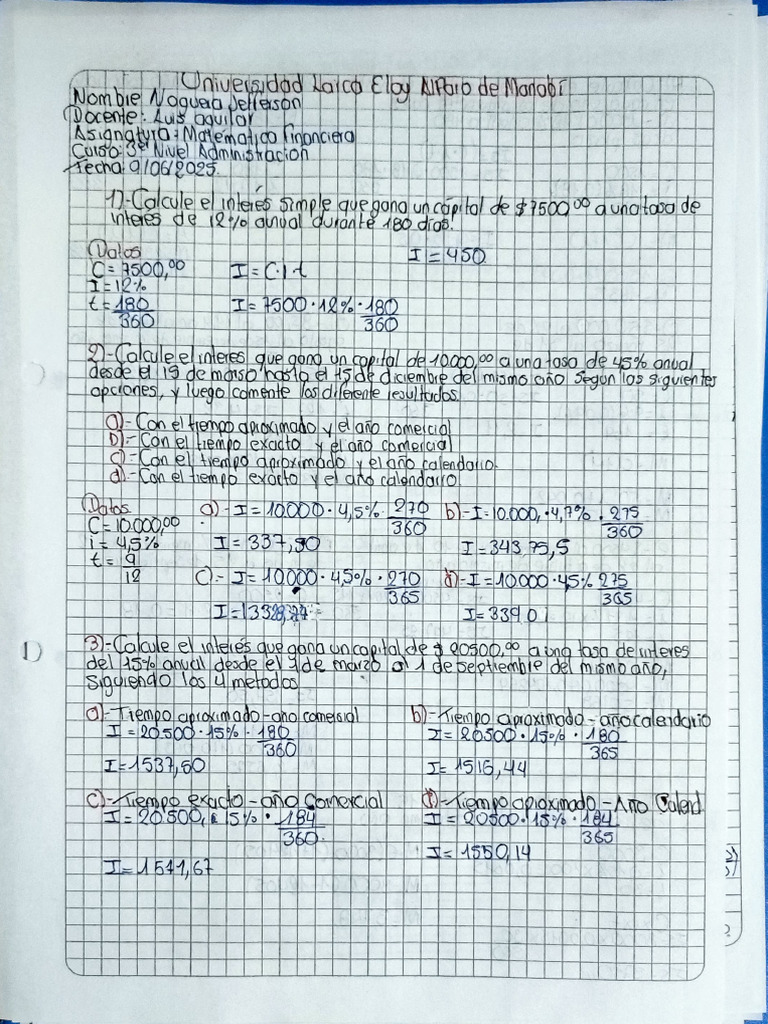 Universidad Laica Eloy Alfaro de Manabí
Nombre Noguera Jefferson
Docente: Luis aguilar
Asignatura: Matematica Financiera
Curso: 3º Nivel Administracion
Fecha: 9/06/2025
1)-Calcule el interés simple que gana un capital de $7500,00 a una tasa de
interes de 12% anual durante 180 dias.
Datos
I = 450
C = 7500,00 I = C.I.t
I = 12%
t = 180/360 I = 7500 · 12% · 180/360
2)-Calcule el interes que gana un capital de 10000,00 a una tasa de 45% anual
desde el 15 de marso hasta el 15 de diciembre del mismo año segun las siguientes
opciones, y luego comente los diferente resultados.
a)-Con el tiempo aproximado y el año comercial
b)-Con el tiempo exacto y el año comercial
c)-Con el tiempo aproximado y el año calendario
d)-Con el tiempo exacto y el año calendario
Datos a)-I = 10000 · 4,5% · 270/360 b)-I = 10.000, · 4,7% · 275/360
C = 10.000,00
i = 4,5% I = 337,50 I = 343 75,5
t = 9/12
c)-I = 10000 · 45% · 270/365 d)-I = 10000 · 45% 275/365
I = 339 01
3)-Calcule el interés que gana un capital de $ 20500,00 a una tasa de interes
del 15% anual desde el 1 de marzo al 1 de septiembre del mismo año,
siguiendo los 4 metodos
a)-Tiempo aproximado-año comercial b)-Tiempo aproximado-año calendario
I = 20500 · 15% · 180/360 I = 20500 · 15% · 180/365
I = 1537,50 I = 1516,44
c)-Tiempo exacto-año Comercial d)-Tiempo aproximado-Año Calend
I = 20500, · 15% · 184/360 I = 20500 · 15% · 184/365
I = 1571,67 I = 1550,14